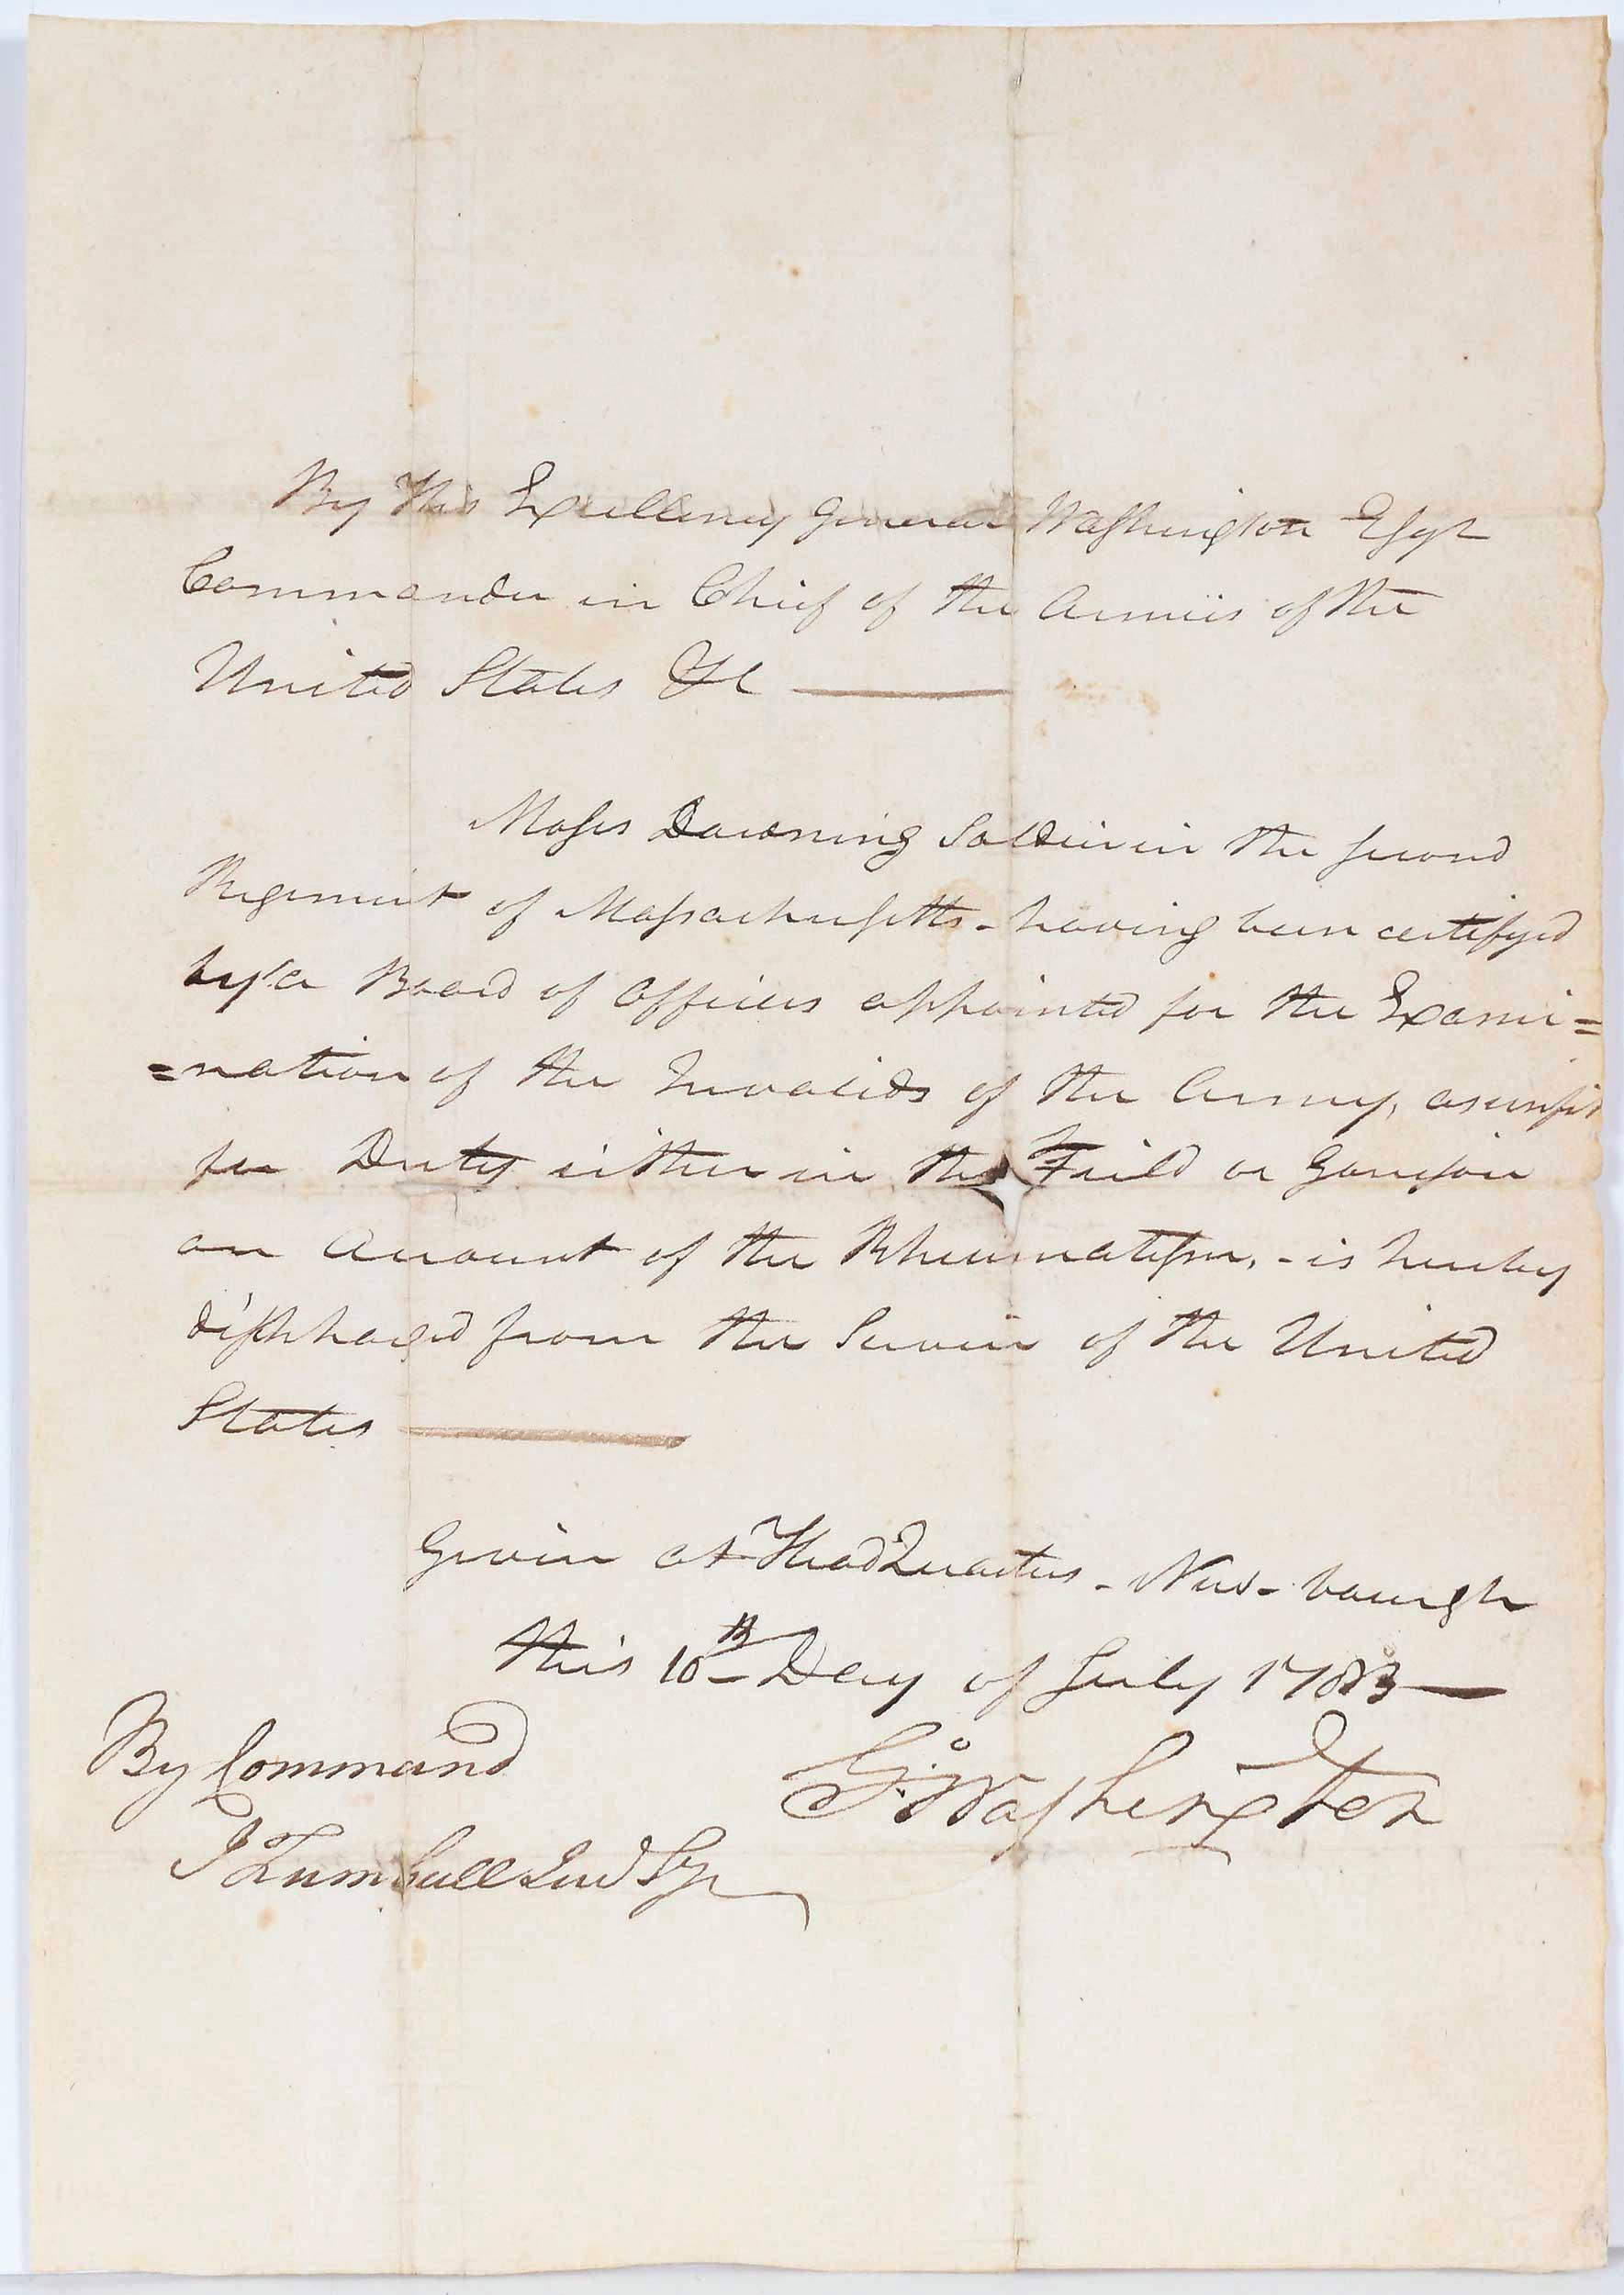 By His Excellency General Washington Esqr
Commander in Chief of the Armies of the
United States &c
Moses Downing Soldier in the second
Regiment of Massachusetts - having been certifyed
by a Board of Officers appointed for the Exami=
=nation of the Invalids of the Army, as unfit
for Duty either in the Feild or Garrison
on Account of the Rheumatism, - is hereby
discharged from the Service of the United
States
Given at Head Quarters - New-bourgh
this 10th Day of July 1783
Go: Washington
By Command
J Trumbull Jun